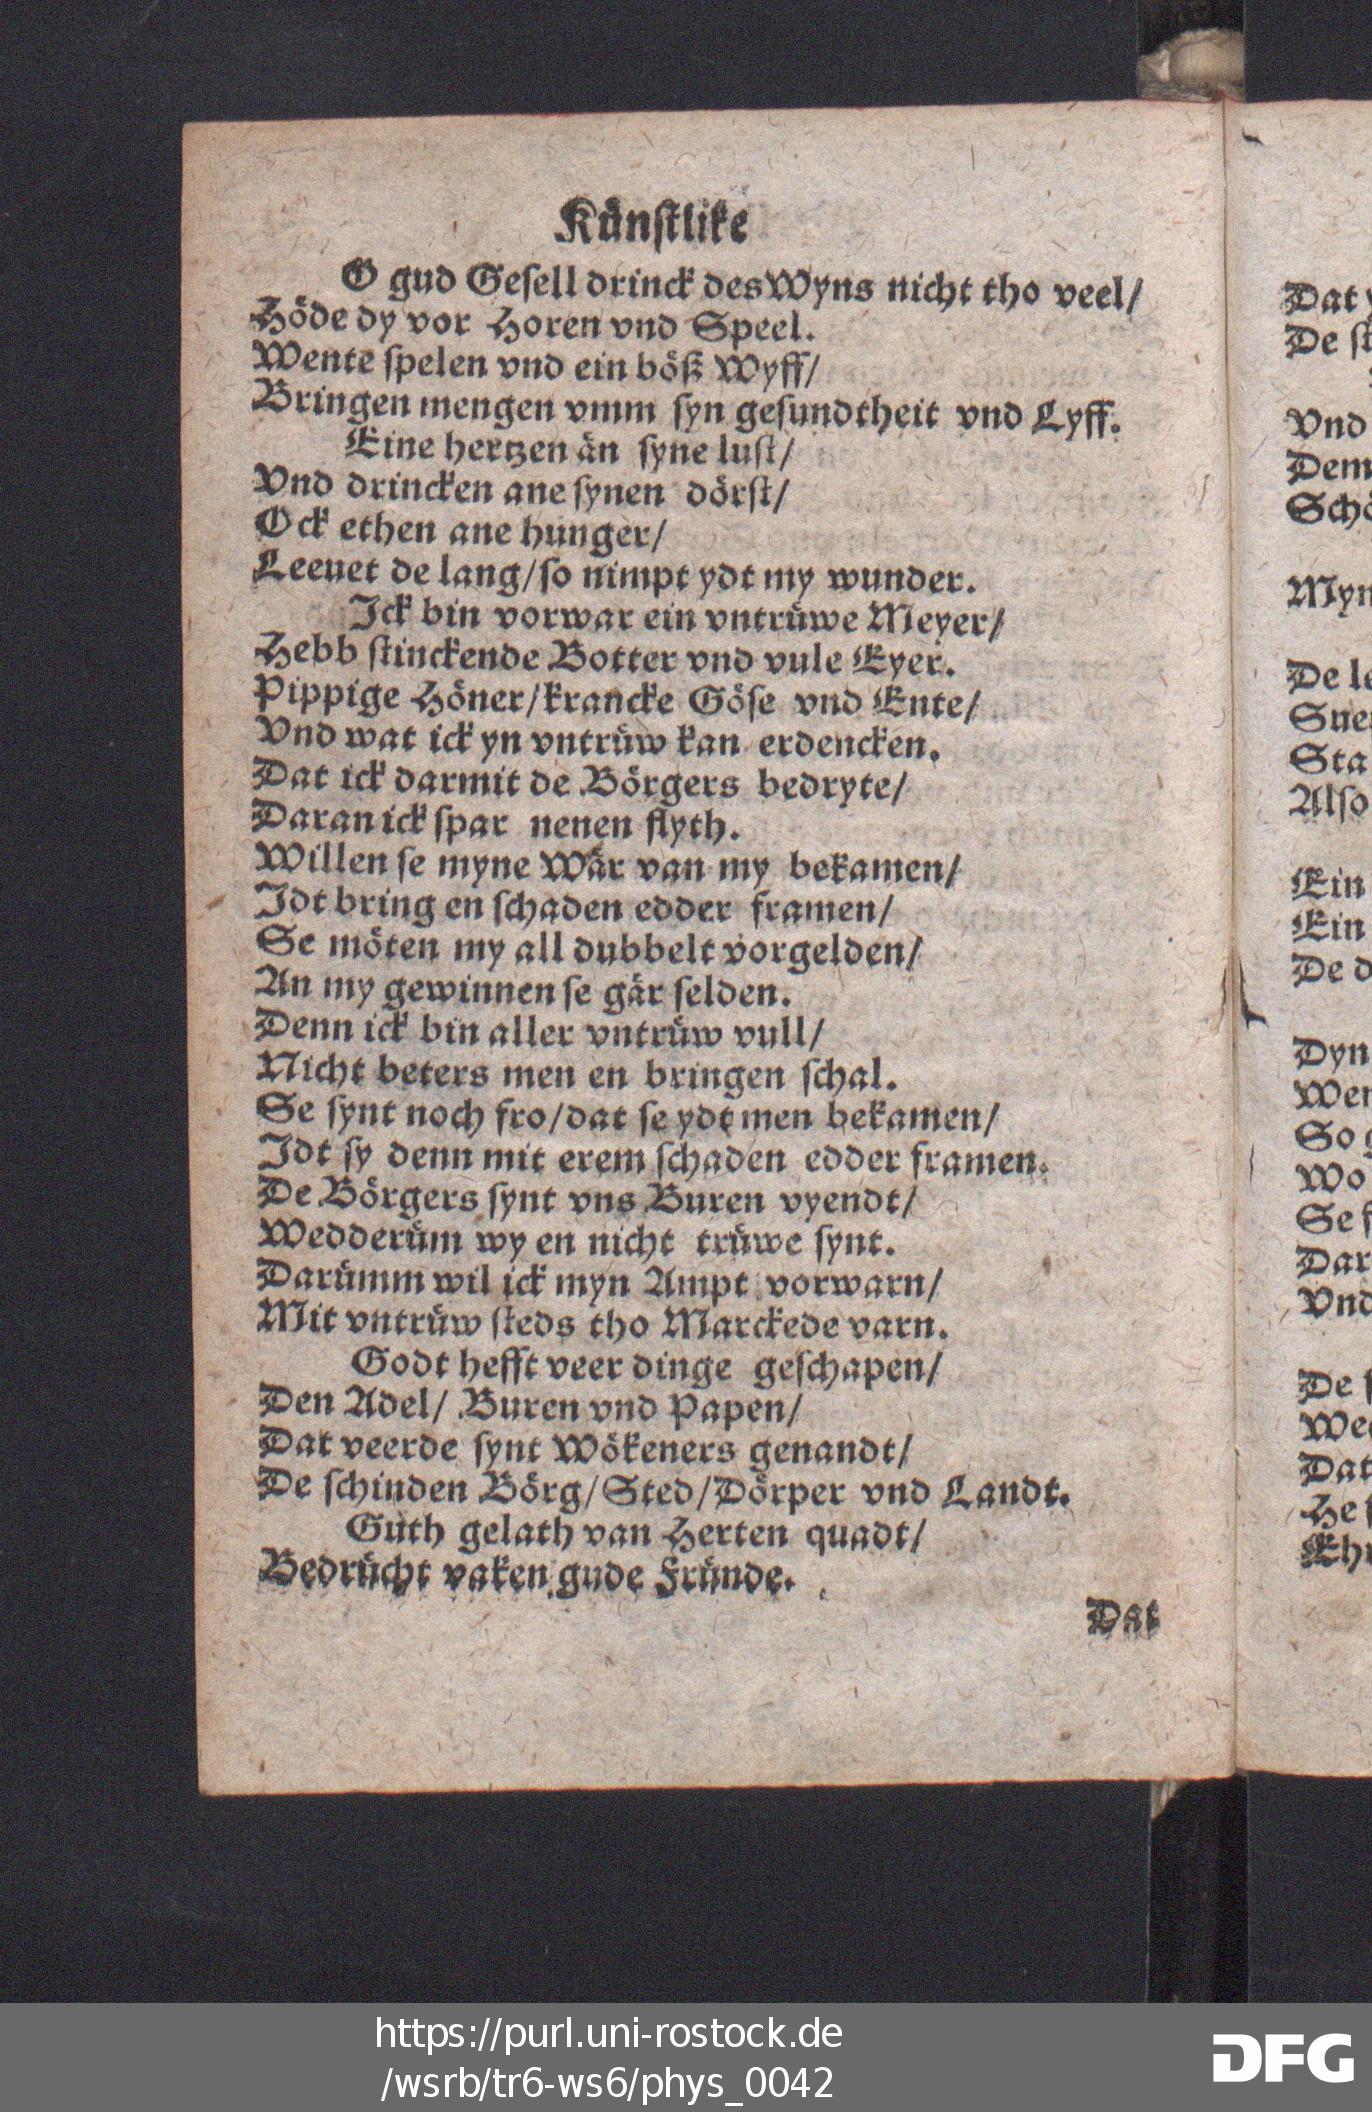 Künstlike
O gud Gesell drinck des Wyns nicht tho veel/
Höde dy vor Horen vnd Speel.
Wente spelen vnd ein böß Wyff/
Bringen mengen vmm syn gesundtheit vnd Lyff.
Eine hertzen än syne lust/
Vnd drincken ane synen dörst/
Ock ethen ane hunger/
Leeuet de lang/so nimpt ydt my wunder.
Ick bin vorwar ein vntrüwe Meyer/
Hebb stinckende Botter vnd vule Eyer.
Pippige Höner/krancke Göse vnd Ente/
Vnd wat ick yn vntrüw kan erdencken.
Dat ick darmit de Börgers bedryte/
Daran ick spar nenen flyth.
Willen se myne Wär van my bekamen/
Idt bring en schaden edder framen/
Se möten my all dubbelt vorgelden/
An my gewinnen se gär selden.
Denn ick bin aller vntrüw vull/
Nicht beters men en bringen schal.
Se synt noch fro/dat se ydt men bekamen/
Idt sy denn mit erem schaden edder framen.
De Börgers synt vns Buren vyendt/
Wedderüm wy en nicht trüwe synt.
Darümm wil ick myn Ampt vorwarn/
Mit vntrüw steds tho Marckede varn.
Godt hefft veer dinge geschapen/
Den Adel/ Buren vnd Papen/
Dat veerde synt Wökeners genandt/
De schinden Börg/Sted/Dörper vnd Landt.
Guth gelath van Herten quadt/
Bedrücht vaken gude Fründe.
Dat
Dat
De
Vnd
Dem
Myn
De le
Sta
Also
Ein
Ein
De d
Dyn
So g
Wo
Se
Dar
Vnd
De
Dat
He
https://purl.uni-rostock.de
/wsrb/tr6-ws6/phys_0042
DFG